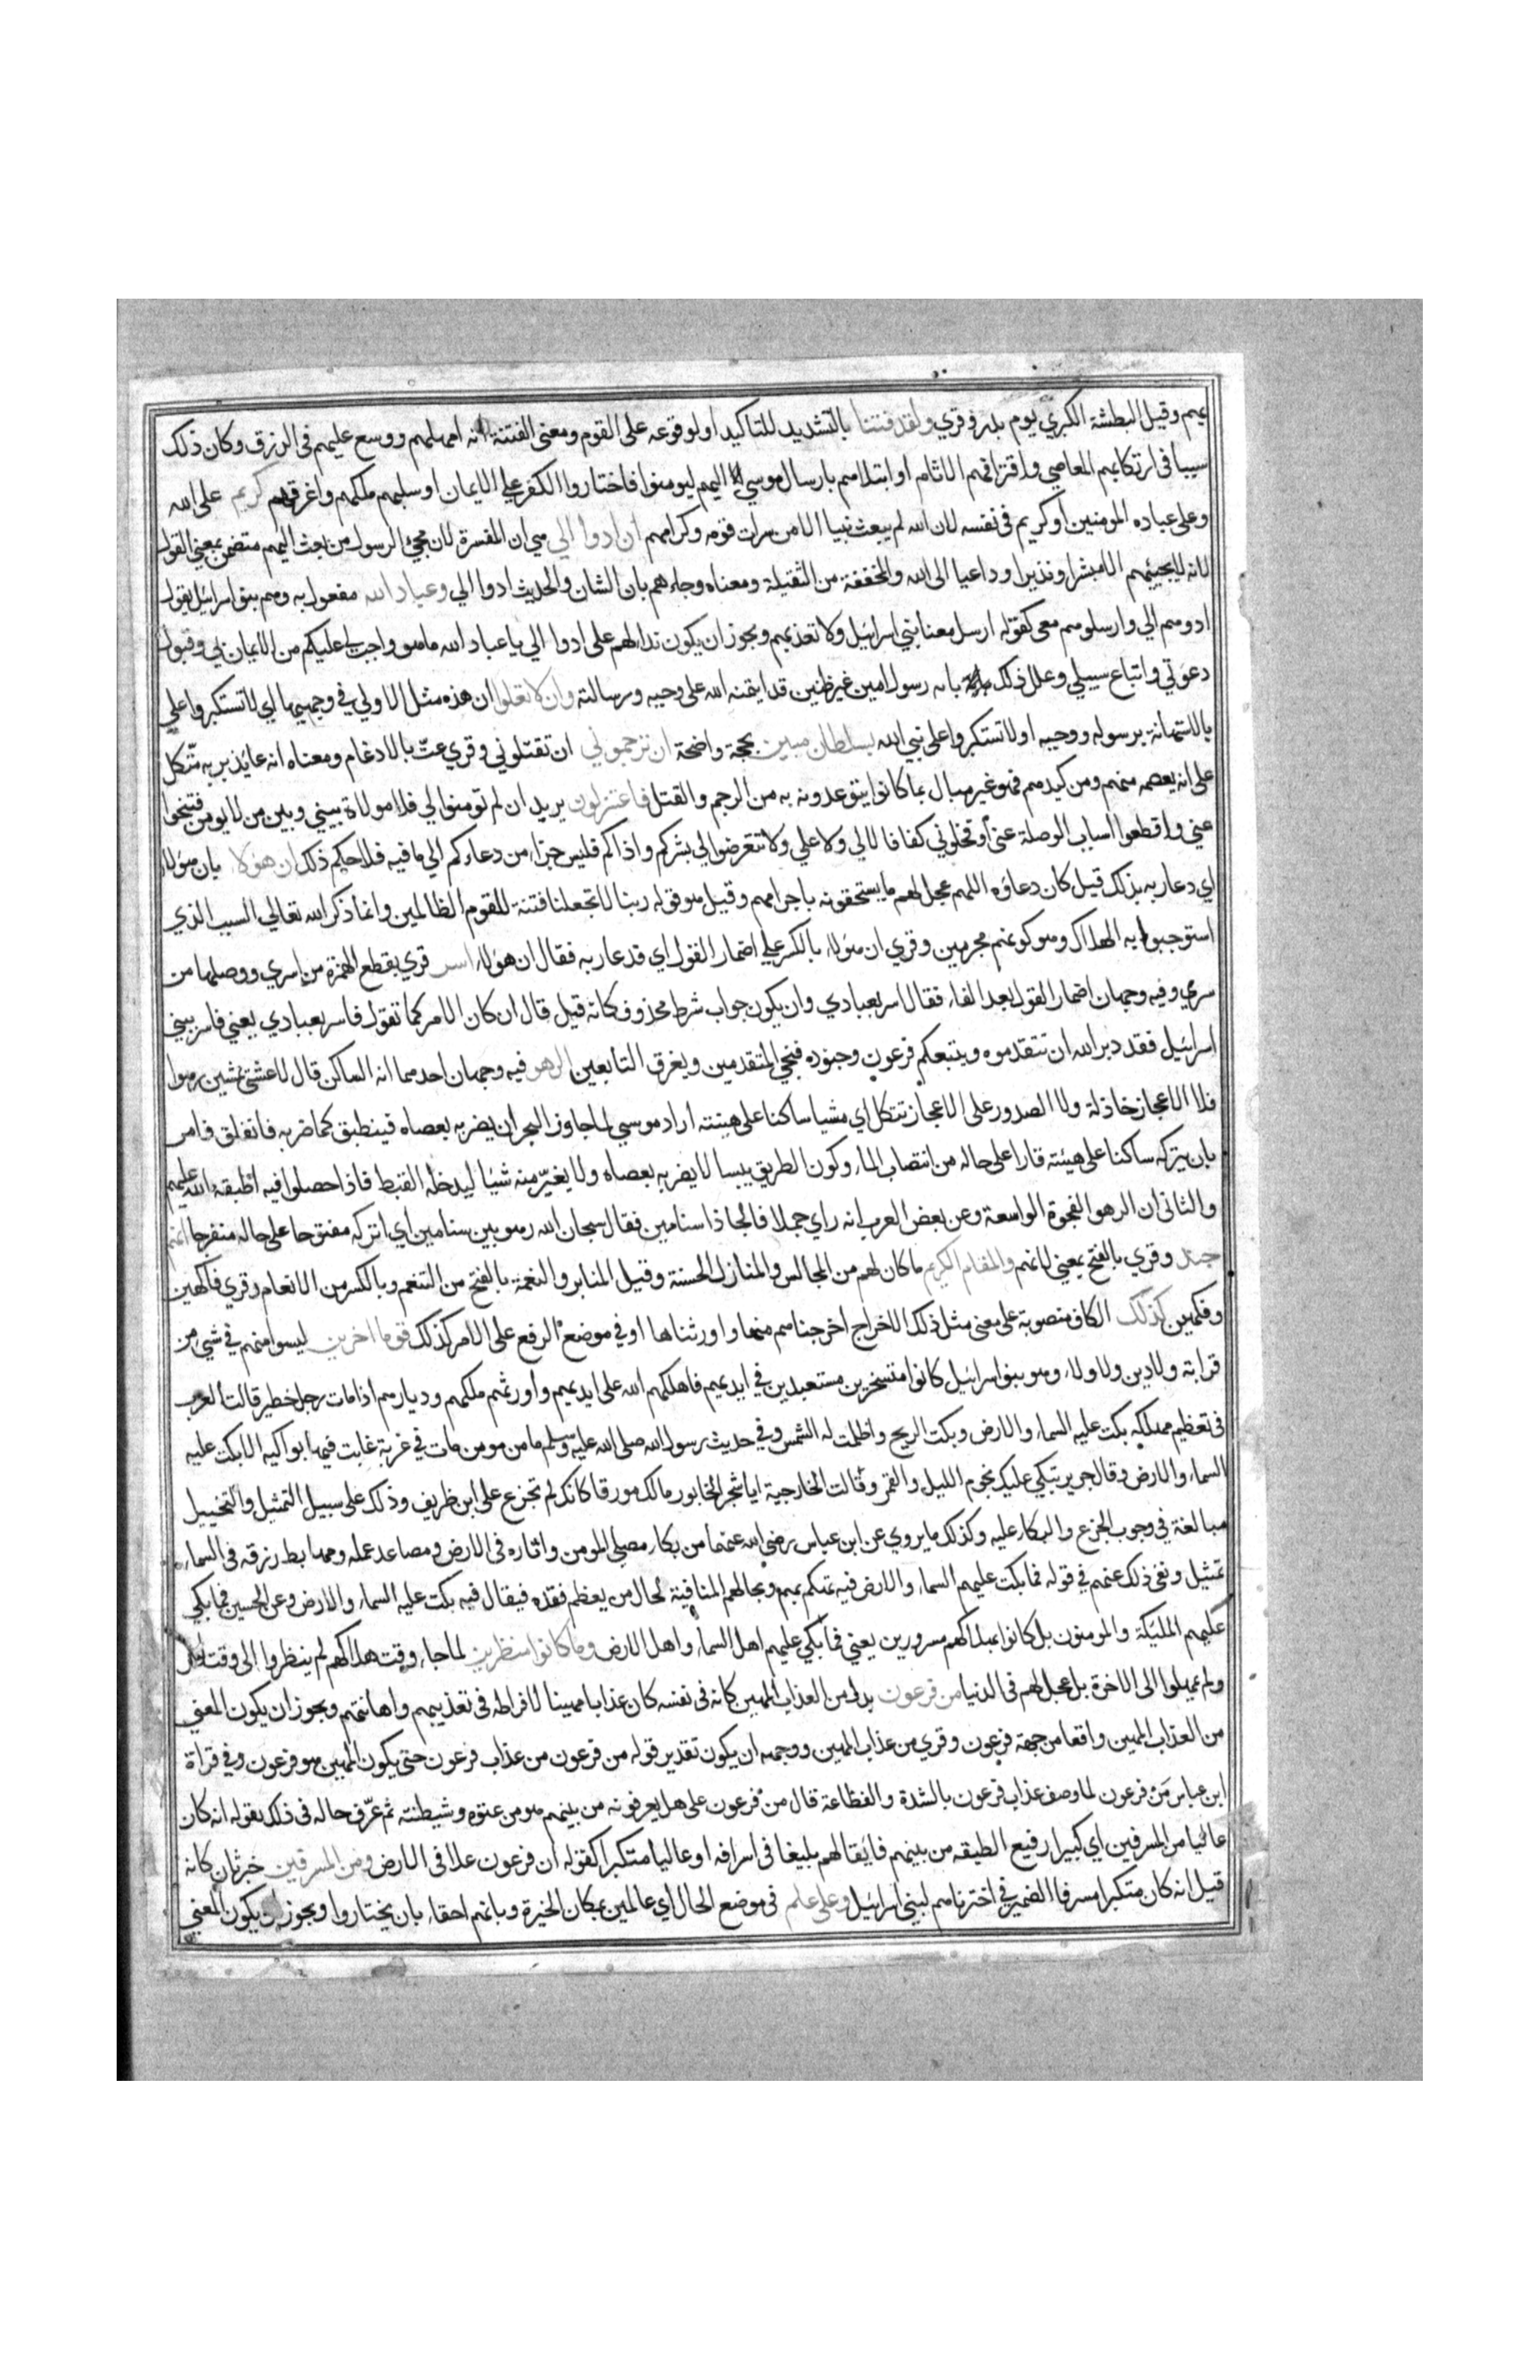 بهم وقيل البطشة الكبري يوم بدر وقري ولقد فتنا بالتشديد للتاكيد او لوقوعه على القوم ومعنى الفتنة انه امهلهم ووسع عليهم فى الرزق وكان ذلك
سببا فى ارتكابهم المعاصي واقترافهم الاثام او ابتلاهم بارسال موسي اليهم ليومنوا فاختاروا الكفر علي الايمان او سلبهم ملكهم واغرقهم كريم على الله
وعلى عباده المومنين او كريم فى نفسه لان الله لم يبعث نبيا الا من سراة قومه وكرامهم ان ادوا الي هي ان المفسرة لان مجئ الرسول من بعث اليهم متضمن بمعني القول
لانه لا يجيئهم الا مبشرا ونذيرا وداعيا الى الله والمخففة من الثقيلة ومعناه وجاءهم بان الشان والحديث ادوا الي وعباد الله مفعول به وهم بنو اسرائيل يقول
ادوهم الي وارسلوهم معى كقوله ارسل معنا بني اسرائيل ولا تعذبهم ويجوز ان يكون ندا لهم على ادوا الي يا عباد الله ما هو واجب لي عليكم من الايمان بي وقبول
دعوتي واتباع سبيلي وعلل ذلك بانه رسول امين غير ظنين قد ايتمنه الله على وحيه ورسالته وان لا تعلوا ان هذه مثل الاولي في وجهيها اي لا تستكبروا علي
بالاستهانة برسوله ووحيه او لا تستكبروا على نبي الله بسلطان مبين بحجة واضحة ان ترجموني ان تقتلوني وقري عتّ بالادغام ومعناه انه عايذ بربه متّكل
على انه يعصمه منهم ومن كيدهم فهو غير مبال بما كانوا يتوعدونه به من الرجم والقتل فاعتزلون يريد ان لم تومنوا لي فلا موالاة بيني وبين من لا يومن فتنحوا
عني واقطعوا اسباب الوصلة عنى او فخلوني كفافا لا لي ولا علي ولا تتعرضوا لي بشركم واذاكم فليس جزاء من دعاكم الي ما فيه فلاحكم ذلك ان هؤلاء بان هؤلاء
اي دعا ربه بذلك قيل كان دعاؤه اللهم عجل لهم ما يستحقونه باجرامهم وقيل هو قوله ربنا لا تجعلنا فتنة للقوم الظالمين وانما ذكر الله تعالي السبب الذي
استوجبوا به الهلاك وهو كونهم مجرمين وقري ان هؤلاء بالكسر علي اضمار القول اي فدعا ربه فقال ان هؤلاء اسر قري بقطع الهمزة من اسري ووصلها من
سري وفيه وجهان اضمار القول بعد الفاء فقال اسر بعبادي وان يكون جواب شرط محذوف كانه قيل قال ان كان الامر كما تقول فاسر بعبادي يعني فاسر ببنى
اسرائيل فقد دبر الله ان تتقدموه ويتبعكم فرعون وجنوده فينجي المتقدمين ويغرق التابعين الرهو فيه وجهان احدهما انه الساكن قال الاعشى يمشين رهوا
فلا الاعجاز خاذلة ولا الصدور على الاعجاز تتكل اي مشيا ساكنا على هينته اراد موسي لما جاوز البحر ان يضربه بعصاه فينطبق كما ضربه فانفلق فامر
بان يتركه ساكنا على هيئته قارا على حاله من انتصاب الماء وكون الطريق يبسا لا يضربه بعصاه ولا يغيّر منه شيئا ليدخله القبط فاذا حصلوا فيه اطبقه الله عليهم
والثانى ان الرهو الفجوة الواسعة وعن بعض العرب انه راي جملا فالجا ذا سنامين فقال سبحان الله رهو بين سنامين اي اتركه مفتوحا على حاله منفرجا انهم
جند وقري بالفتح بمعني لانهم والمقام الكريم ما كان لهم من المجالس والمنازل الحسنة وقيل المنابر والنعمة بالفتح من التنعم وبالكسر من الانعام وقري فاكهين
وفكهين كذلك الكاف منصوبة على معنى مثل ذلك الاخراج اخرجناهم منها واورثناها او في موضع الرفع على الامر كذلك قوما اخرين ليسوا منهم في شي من
قرابة ولا دين ولا ولاء وهو بنو اسرائيل كانوا متسخرين مستعبدين في ايديهم فاهلكهم الله على ايديهم واورثهم ملكهم وديارهم اذا مات رجل خطير قالت العرب
فى تعظيم مهلكه بكت عليه السماء والارض وبكت الريح واظلمت له الشمس وفي حديث رسول الله صلى الله عليه وسلم ما من مومن مات في غربة غابت فيها بواكيه الا بكت عليه
السماء والارض وقال جرير تبكي عليك نجوم الليل والقمر وقالت الخارجية ايا شجر الخابور مالك مورقا كانك لم تجزع على ابن ظريف وذلك على سبيل التمثيل والتخييل
مبالغة في وجوب الجزع والبكاء عليه وكذلك ما يروي عن ابن عباس رضي الله عنهما من بكاء مصلي المومن واثاره فى الارض ومصاعد عمله ومهابط رزقه فى السماء
تمثيل ونفى ذلك عنهم في قوله فما بكت عليهم السماء والارض فيه تهكم بهم وبحالهم المنافية لحال من يعظم فقده فيقال فيه بكت عليه السماء والارض وعن الحسين فما بكي
عليهم المليكة والمومنون بل كانوا بهلاكهم مسرورين يعني فما بكي عليهم اهل السماء واهل الارض وما كانوا منظرين لما جاء وقت هلاكهم لم ينظروا الى وقت اخر
ولم يمهلوا الى الاخرة بل عجل لهم فى الدنيا من فرعون بدل من العذاب المهين كانه فى نفسه كان عذابا مهينا لافراطه فى تعذيبهم واهانتهم ويجوز ان يكون المعني
من العذاب المهين واقعا من جهة فرعون وقري من عذاب المهين ووجهه ان يكون تقدير قوله من فرعون من عذاب فرعون حتى يكون المهين هو فرعون وفي قراة
ابن عباس مَنْ فرعون لما وصف عذاب فرعون بالشدة والفظاعة قال من فرعون على هل يعرفونه من بينهم هو من عتوه وشيطنته ثم عرّف حاله فى ذلك بقوله انه كان
عاليا من المسرفين اي كبيرا رفيع الطبقه من بينهم فائقا لهم بليغا فى اسرافه او عاليا متكبرا كقوله ان فرعون علا فى الارض ومن المسرفين خبر ثان كانه
قيل انه كان متكبرا مسرفا الضمير في اخترناهم لبني اسرائيل وعلى علم فى موضع الحال اي عالمين بمكان الخيرة وبانهم احقاء بان يختاروا ويجوز ان يكون المعني